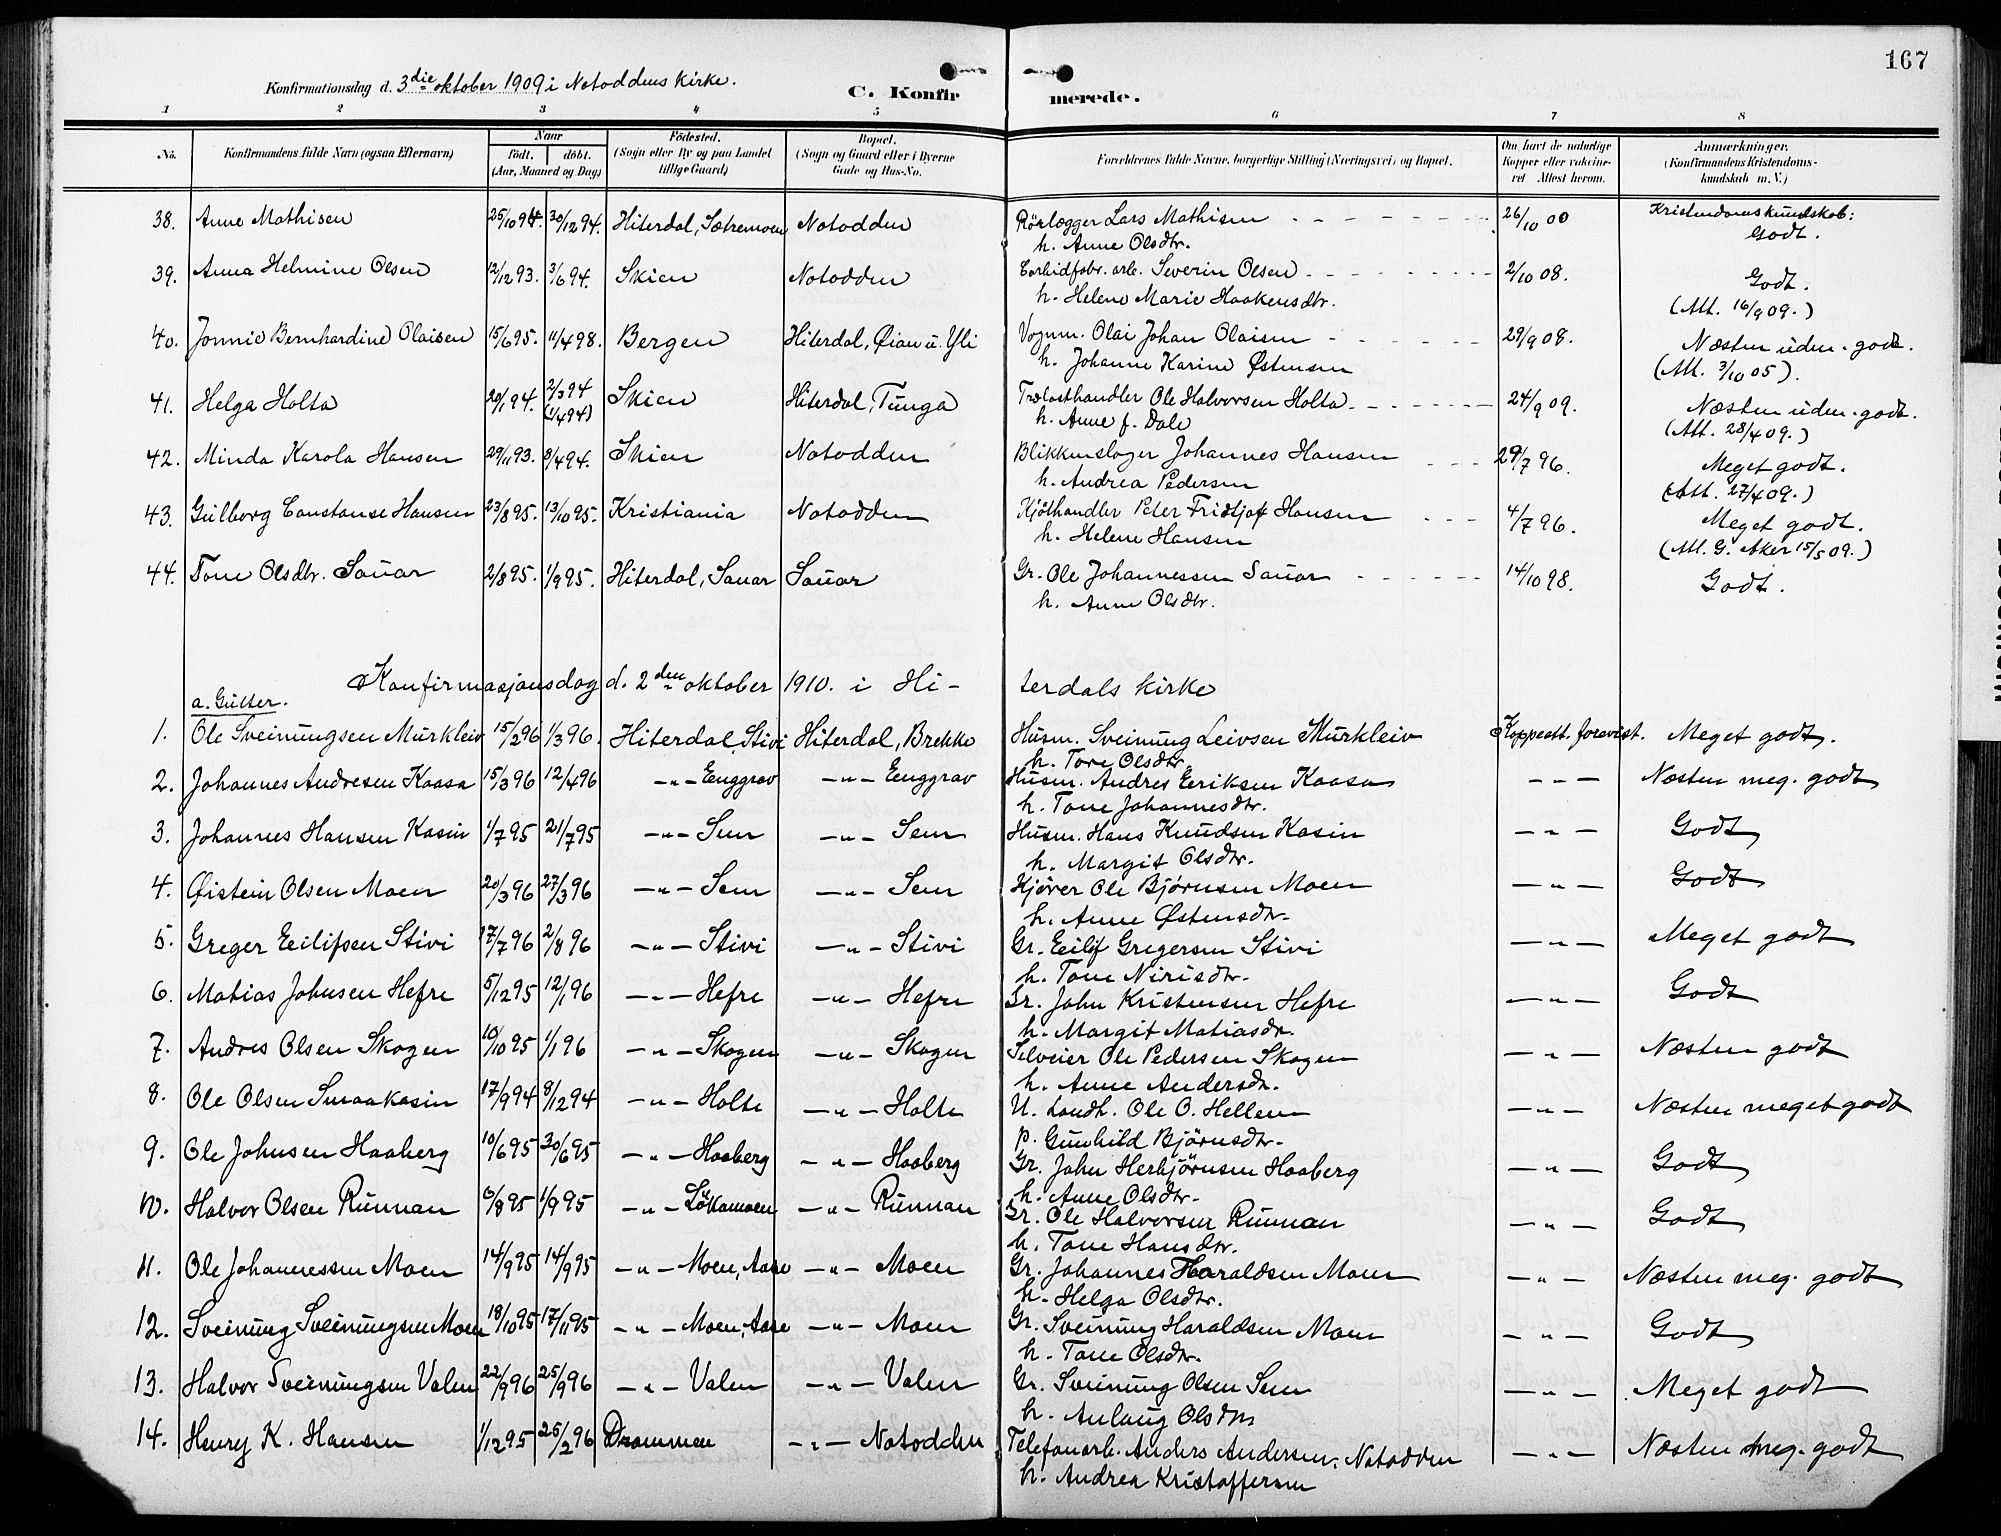 167
Konfirmationsdag d. 3die oktober 1909 i Notoddens kirke.
C. Konfirmerede.
1 2 3 4 5 6 7 8
No. Konfirmandens fulde Navn (ogsaa Efternavn) Naar födt. döbt. (Aar, Maaned og Dag) Födested. (Sogn eller By og paa Landet tillige Gaard) Bopæl. (Sogn og Gaard eller i Byerne Gade og Hus-No. Forældrenes fulde Navne, borgerlige Stilling (Næringsvei) og Bopæl. Om havt de naturlige Kopper eller vaccineret Attest herom. Anmærkninger. (Konfirmandens Kristendomskundskab m. V.)
38. Anne Mathisen 25/10 94. 30/12 94. Hiterdal, Sætremoen Notodden Rörlægger Lars Mathisen 26/10 00 Kristendomskundskab:
h. Anne Olsdtr. Godt.
39. Anna Helmine Olsen 12/12 93. 3/6 94. Skien Notodden Carbidfabr. arb. Severin Olsen 2/10 08. Godt.
h. Helene Marie Haakensdtr. (Att. 16/9 09.)
40. Jonnie Bernhardine Olaisen 15/6 95. 11/4 98. Bergen Hiterdal, Øian u. Yli Vognm. Olai Johan Olaisen 29/9 08. Næsten uden. godt.
h. Johanne Karine Østensen (Att. 3/10 05).
41. Helga Holta 20/1 94. 2/3 94 (1/4 94) Skien Hiterdal, Tunga Trælasthandler Ole Halvorsen Holta 24/9 09. Næsten uden. godt.
h. Anne f. Dale (Att. 28/4 09.)
42. Minda Karola Hansen 29/11 93. 8/4 94. Skien Notodden Blikkenslager Johannes Hansen 29/7 96. Meget godt.
h. Andrea Pedersen (Att. 27/4 09.)
43. Gulborg Constanse Hansen 23/8 95. 13/10 95. Kristiania Notodden Kjøthandler Peter Fridtjof Hansen 4/7 96. Meget godt.
h. Helene Hansen (Att. G. Aker 15/5 09.)
44. Tone Olsdtr. Sauar 2/8 95. 1/9 95. Hiterdal, Sauar Sauar Gr. Ole Johannessen Sauar 14/10 98. Godt.
h. Anne Olsdtr.
Konfirmasjonsdag d. 2den oktober 1910. i Hiterdals kirke
a. Gutter.
1. Ole Sveinungsen Murkleiv 15/2 96 1/3 96. Hiterdal, Stivi Hiterdal, Brekke Husm. Sveinung Leivsen Murkleiv Koppeatt. forevist. Meget godt.
h. Tore Olsdtr.
2. Johannes Andresen Kaasa 15/3 96 12/4 96 -"- Eenggrav -"- Eenggrav Husm. Andres Eeriksen Kaasa -"- Næsten meg. godt
h. Tone Johannesdtr.
3. Johannes Hansen Kasin 1/7 95 21/7 95 -"- Sem -"- Sem Husm. Hans Knudsen Kasin -"- Godt
h. Margit Olsdtr.
4. Øistein Olsen Moen 20/3 96 27/3 96 -"- Sem -"- Sem Kjører Ole Bjørnsen Moen -"- Godt
h. Anne Østensdtr.
5. Greger Eeilifsen Stivi 17/7 96 2/8 96 -"- Stivi -"- Stivi Gr. Eeilif Gregersen Stivi -"- Meget godt
h. Tone Nirisdtr.
6. Matias Johnsen Hefre 5/12 95 12/1 96 -"- Hefre -"- Hefre Gr. John Kristensen Hefre -"- Godt
h. Margit Matiasdr.
7. Andres Olsen Skogen 10/10 95 1/1 96 -"- Skogen -"- Skogen Selveier Ole Pedersen Skogen -"- Næsten godt
h. Anne Andersdr.
8. Ole Olsen Smaakasin 17/9 94 8/12 94 -"- Holte -"- Holte U. Landh. Ole O. Hellen -"- Næsten meget godt
p. Gunhild Bjørnsdtr.
9. Ole Johnsen Haaberg 10/6 95 30/6 95 -"- Haaberg -"- Haaberg Gr. John Herbjørnsen Haaberg -"- Godt
h. Anne Olsdtr.
10. Halvor Olsen Runnan 6/8 95 1/9 95 -"- -"- Runnan Gr. Ole Halvorsen Runnan -"- Godt
h. Tone Hansdtr.
11. Ole Johannessen Moen 14/9 95 14/9 95 -"- Moen, Aase -"- Moen Gr. Johannes Haraldsen Moen -"- Næsten meg. godt
h. Helga Olsdtr.
12. Sveinung Sveinungsen Moen 18/10 95 17/11 95 -"- Moen, Aase -"- Moen Gr. Sveinung Haraldsen Moen -"- Godt
h. Tone Olsdtr.
13. Halvor Sveinungsen Valen 22/9 96 25/9 96 -"- Valen -"- Valen Gr. Sveinung Olsen Sem -"- Meget godt
h. Anlaug Olsdtr
14. Henry K. Hansen 1/12 95 25/2 96 Drammen -"- Notodden Telefonarb. Anders Andersen, Notodden -"- Næsten meg. godt
h. Andrea Kristoffersen